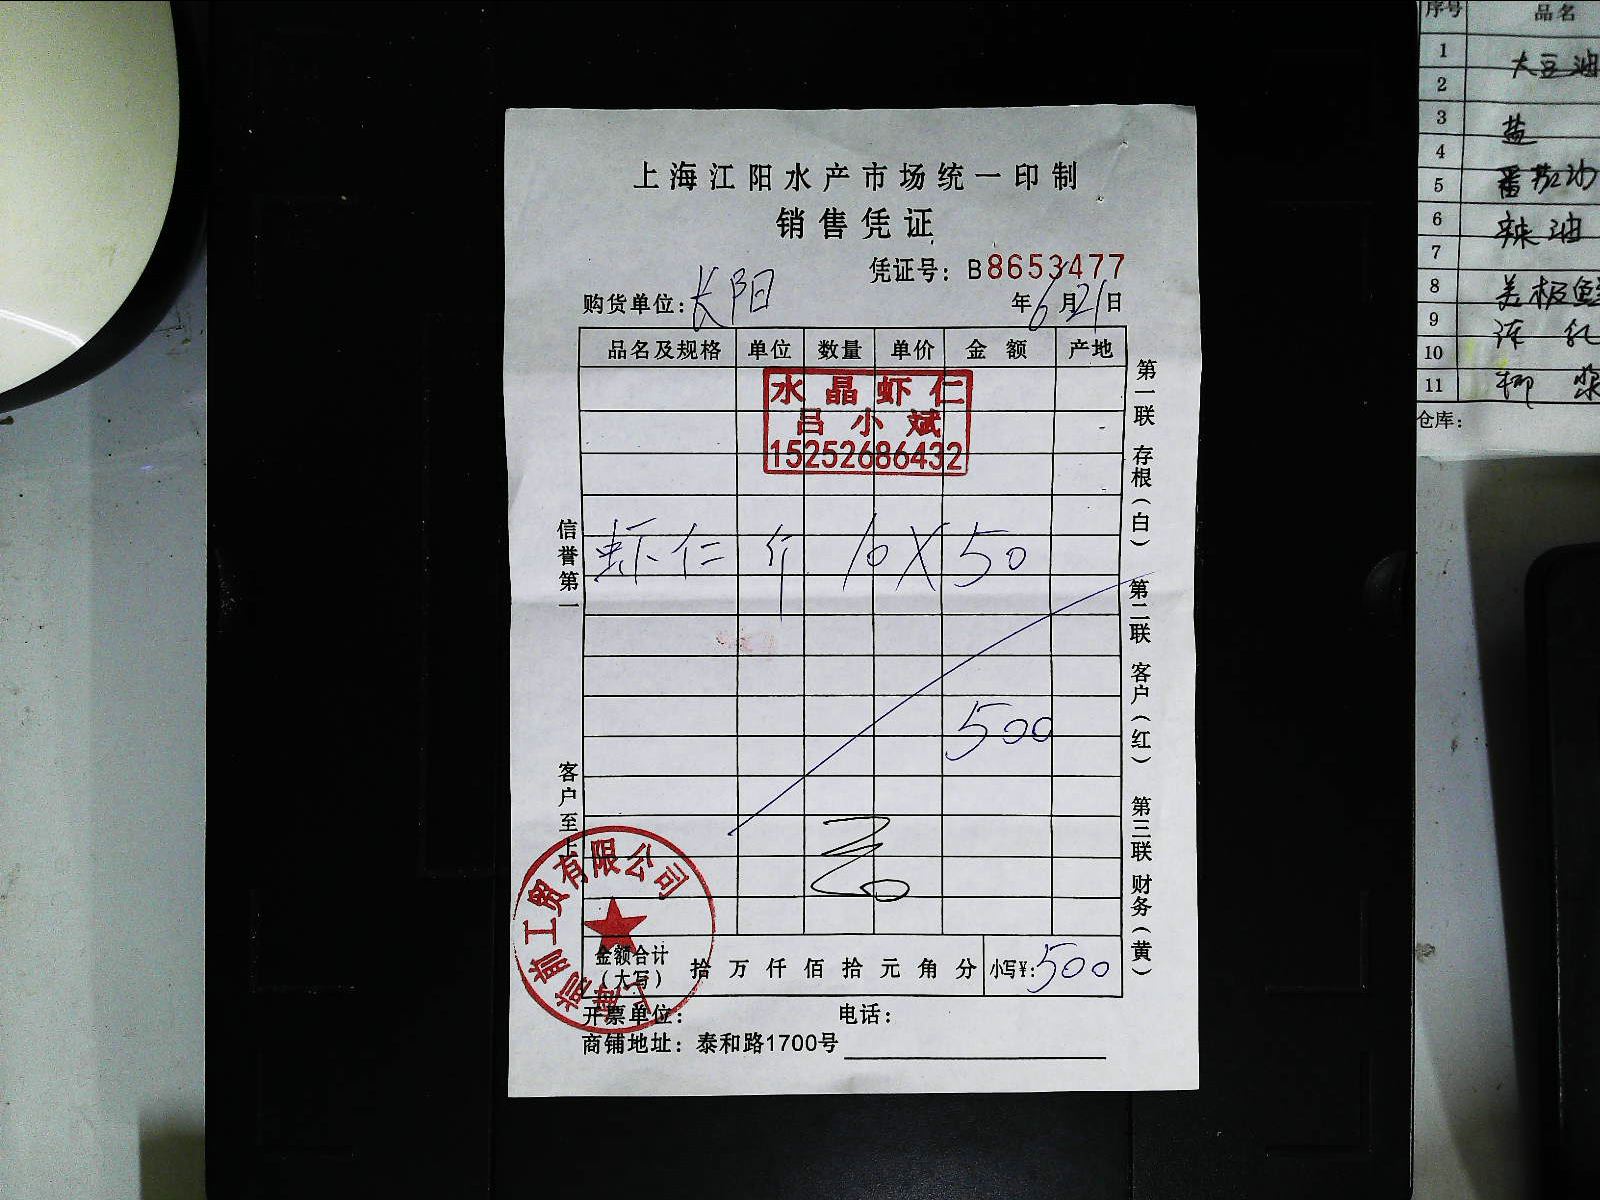 上海江阳水产市场统一印制
销售凭证
凭证号：B8653477
购货单位：长阳 年6月21日
品名及规格 单位 数量 单价 金额 产地
水晶虾仁
吕小斌
15252686432
虾仁 斤 10X50
500
金额合计（大写） 拾万仟佰拾元角分 小写¥：500
开票单位： 电话：
商铺地址：泰和路1700号
信誉第一
客户至上
第一联 存根（白） 第二联 客户（红） 第三联 财务（黄）
上海前前工贸有限公司
序号 品名
1 大豆油
2
3 盐
4
5 番茄沙
6 辣油
7
8 美极鲜
9
10
11
仓库：